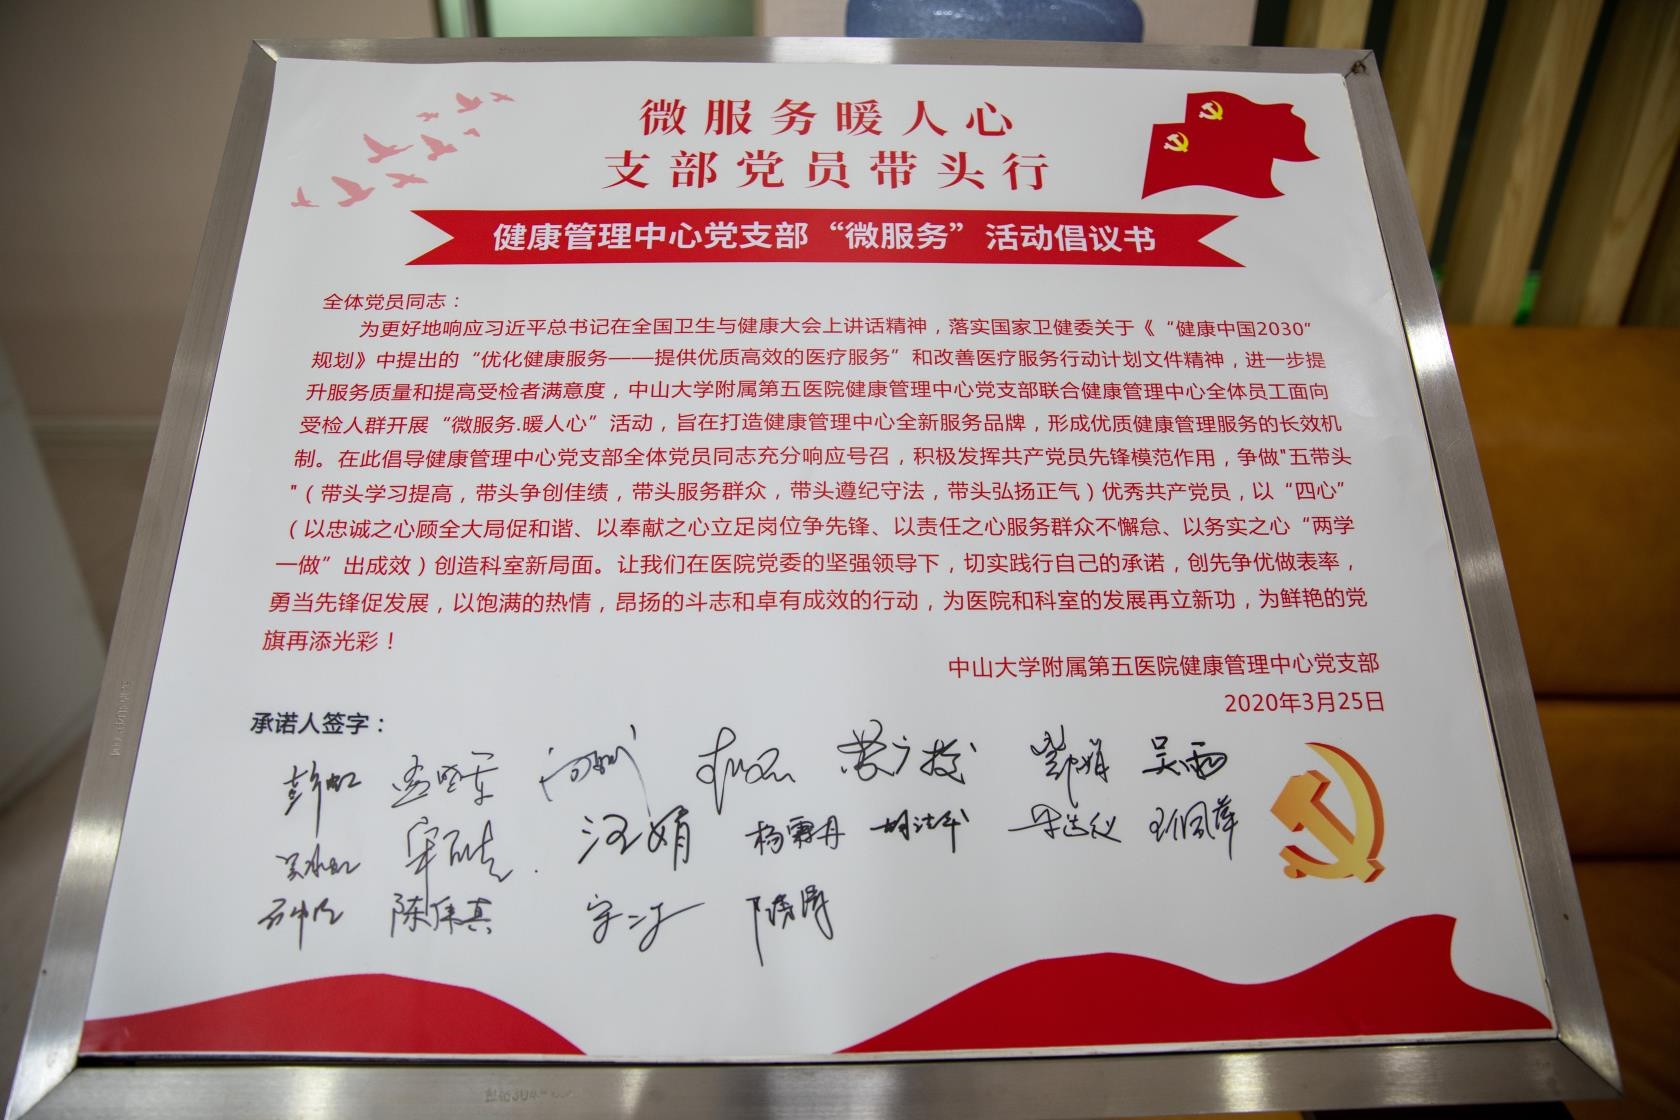 微服务暖人心
支部党员带头行
健康管理中心党支部“微服务”活动倡议书
全体党员同志：
为更好地响应习近平总书记在全国卫生与健康大会上讲话精神，落实国家卫健委关于《“健康中国2030”
规划》中提出的“优化健康服务——提供优质高效的医疗服务”和改善医疗服务行动计划文件精神，进一步提
升服务质量和提高受检者满意度，中山大学附属第五医院健康管理中心党支部联合健康管理中心全体员工面向
受检人群开展“微服务.暖人心”活动，旨在打造健康管理中心全新服务品牌，形成优质健康管理服务的长效机
制。在此倡导健康管理中心党支部全体党员同志充分响应号召，积极发挥共产党员先锋模范作用，争做"五带头
"（带头学习提高，带头争创佳绩，带头服务群众，带头遵纪守法，带头弘扬正气）优秀共产党员，以“四心”
（以忠诚之心顾全大局促和谐、以奉献之心立足岗位争先锋、以责任之心服务群众不懈怠、以务实之心“两学
一做”出成效）创造科室新局面。让我们在医院党委的坚强领导下，切实践行自己的承诺，创先争优做表率，
勇当先锋促发展，以饱满的热情，昂扬的斗志和卓有成效的行动，为医院和科室的发展再立新功，为鲜艳的党
旗再添光彩！
中山大学附属第五医院健康管理中心党支部
2020年3月25日
承诺人签字：
彭虹 吴雨
汪娟 杨霖丹
陈伟真